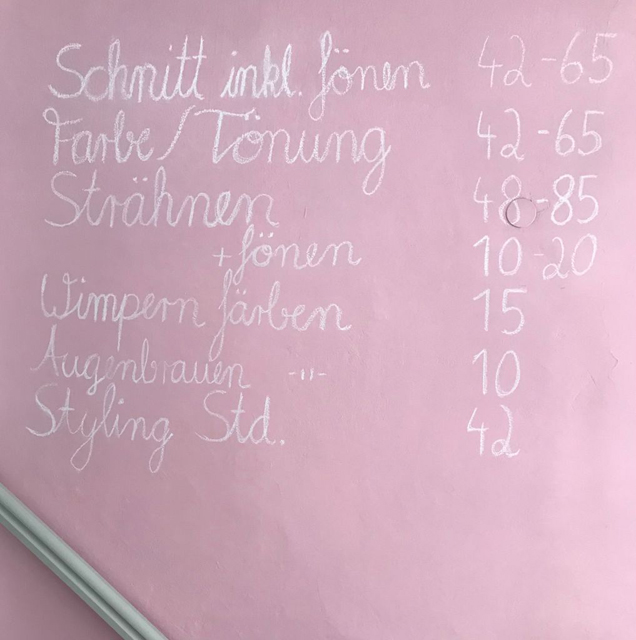 Schnitt inkl. fönen 42-65
Farbe/Tönung 42-65
Strähnen 48-85
+fönen 10-20
Wimpern färben 15
Augenbrauen -"- 10
Styling Std. 42